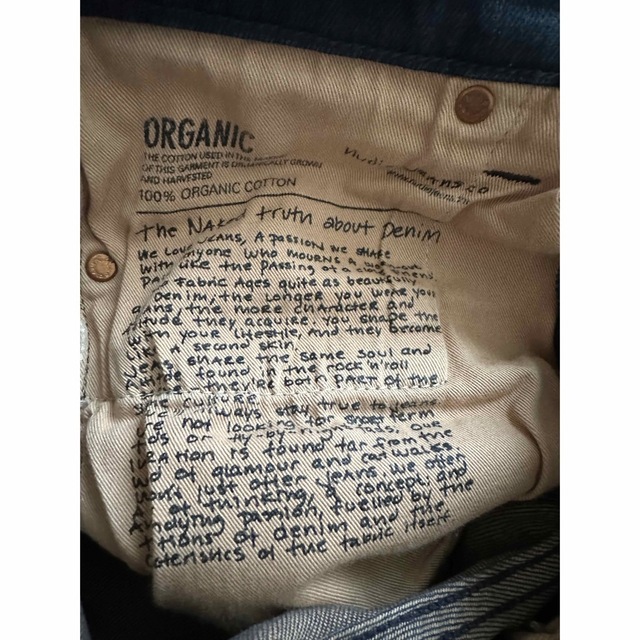 ORGANIC
THE COTTON USED IN THE
OF THIS GARMENT IS ORGANICALLY GROWN
AND HARVESTED
100% ORGANIC COTTON
nudie jeans co
www.nudiejeans.com
the Naked truth about Denim
We Love JEANS, A PASSION WE SHARE
with anyone who mourns a
like the passing of a close friend.
fabric Ages quite as beautifully
Denim, the longer you wear your
the more character and
they acquire. You shape the
your lifestyle, And they become
A second skin.
share the same soul and
found in the rock'n'roll
they're both PART of the
culture.
always stay true to jeans.
not looking for short term
or fly-by-night
is found far from the
of glamour and catwalks
just offer Jeans, we offer
of thinking, a concept and
passion, fuelled by the
of denim and the
of the fabric itself.